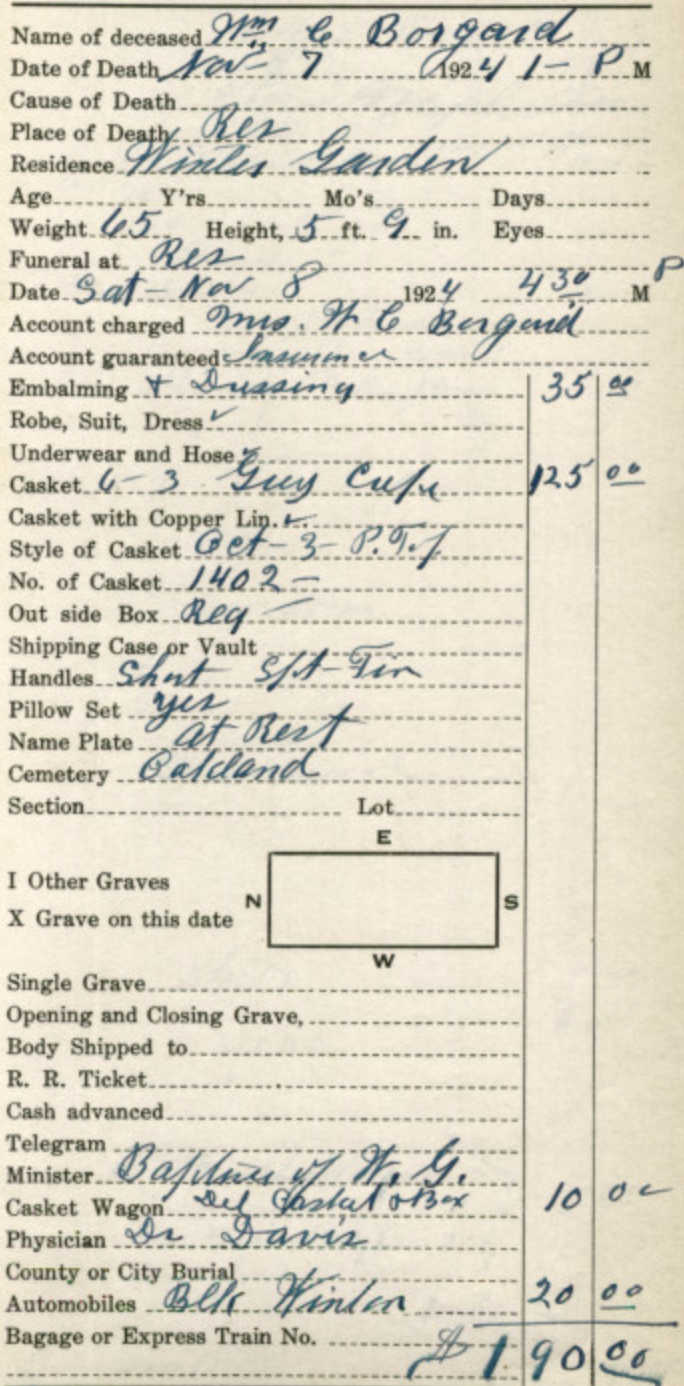 Name of deceased Wm C Borgard
Date of Death Nov- 7 1924 1- P M
Cause of Death
Place of Death Res
Residence Winter Garden
Age Y'rs Mo's Days
Weight 65 Height, 5 ft. 9 in. Eyes
Funeral at Res
Date Sat- Nov 8 1924 4 30 P M
Account charged Mrs. W C Borgard
Account guaranteed Insurance
Embalming + Dressing 35 00
Robe, Suit, Dress ✓
Underwear and Hose ✓
Casket 6-3 Grey Crepe 125 00
Casket with Copper Lin. ✓
Style of Casket Oct-3- P.
No. of Casket 1402-
Out side Box Reg
Shipping Case or Vault
Handles Short Tin
Pillow Set yes
Name Plate at Rest
Cemetery Oakland
Section Lot
E
I Other Graves
N S
X Grave on this date
W
Single Grave
Opening and Closing Grave,
Body Shipped to
R. R. Ticket
Cash advanced
Telegram
Minister Baptist of W. G.
Casket Wagon Del Casket & Box 10 00
Physician Dr Davis
County or City Burial
Automobiles Blk Winton 20 00
Bagage or Express Train No. $ 190 00